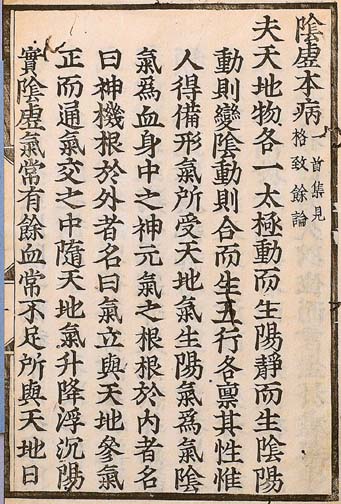 陰虛本病
首集見
格致餘論
夫天地物各一太極動而生陽靜而生陰陽
動則變陰動則合而生五行各禀其性惟
人得備形氣所受天地氣生陽氣爲氣陰
氣爲血身中之神元氣之根根於內者名
曰神機根於外者名曰氣立與天地參氣
正而通氣交之中隨天地氣升降浮沉陽
實陰虛氣常有餘血常不足所與天地日